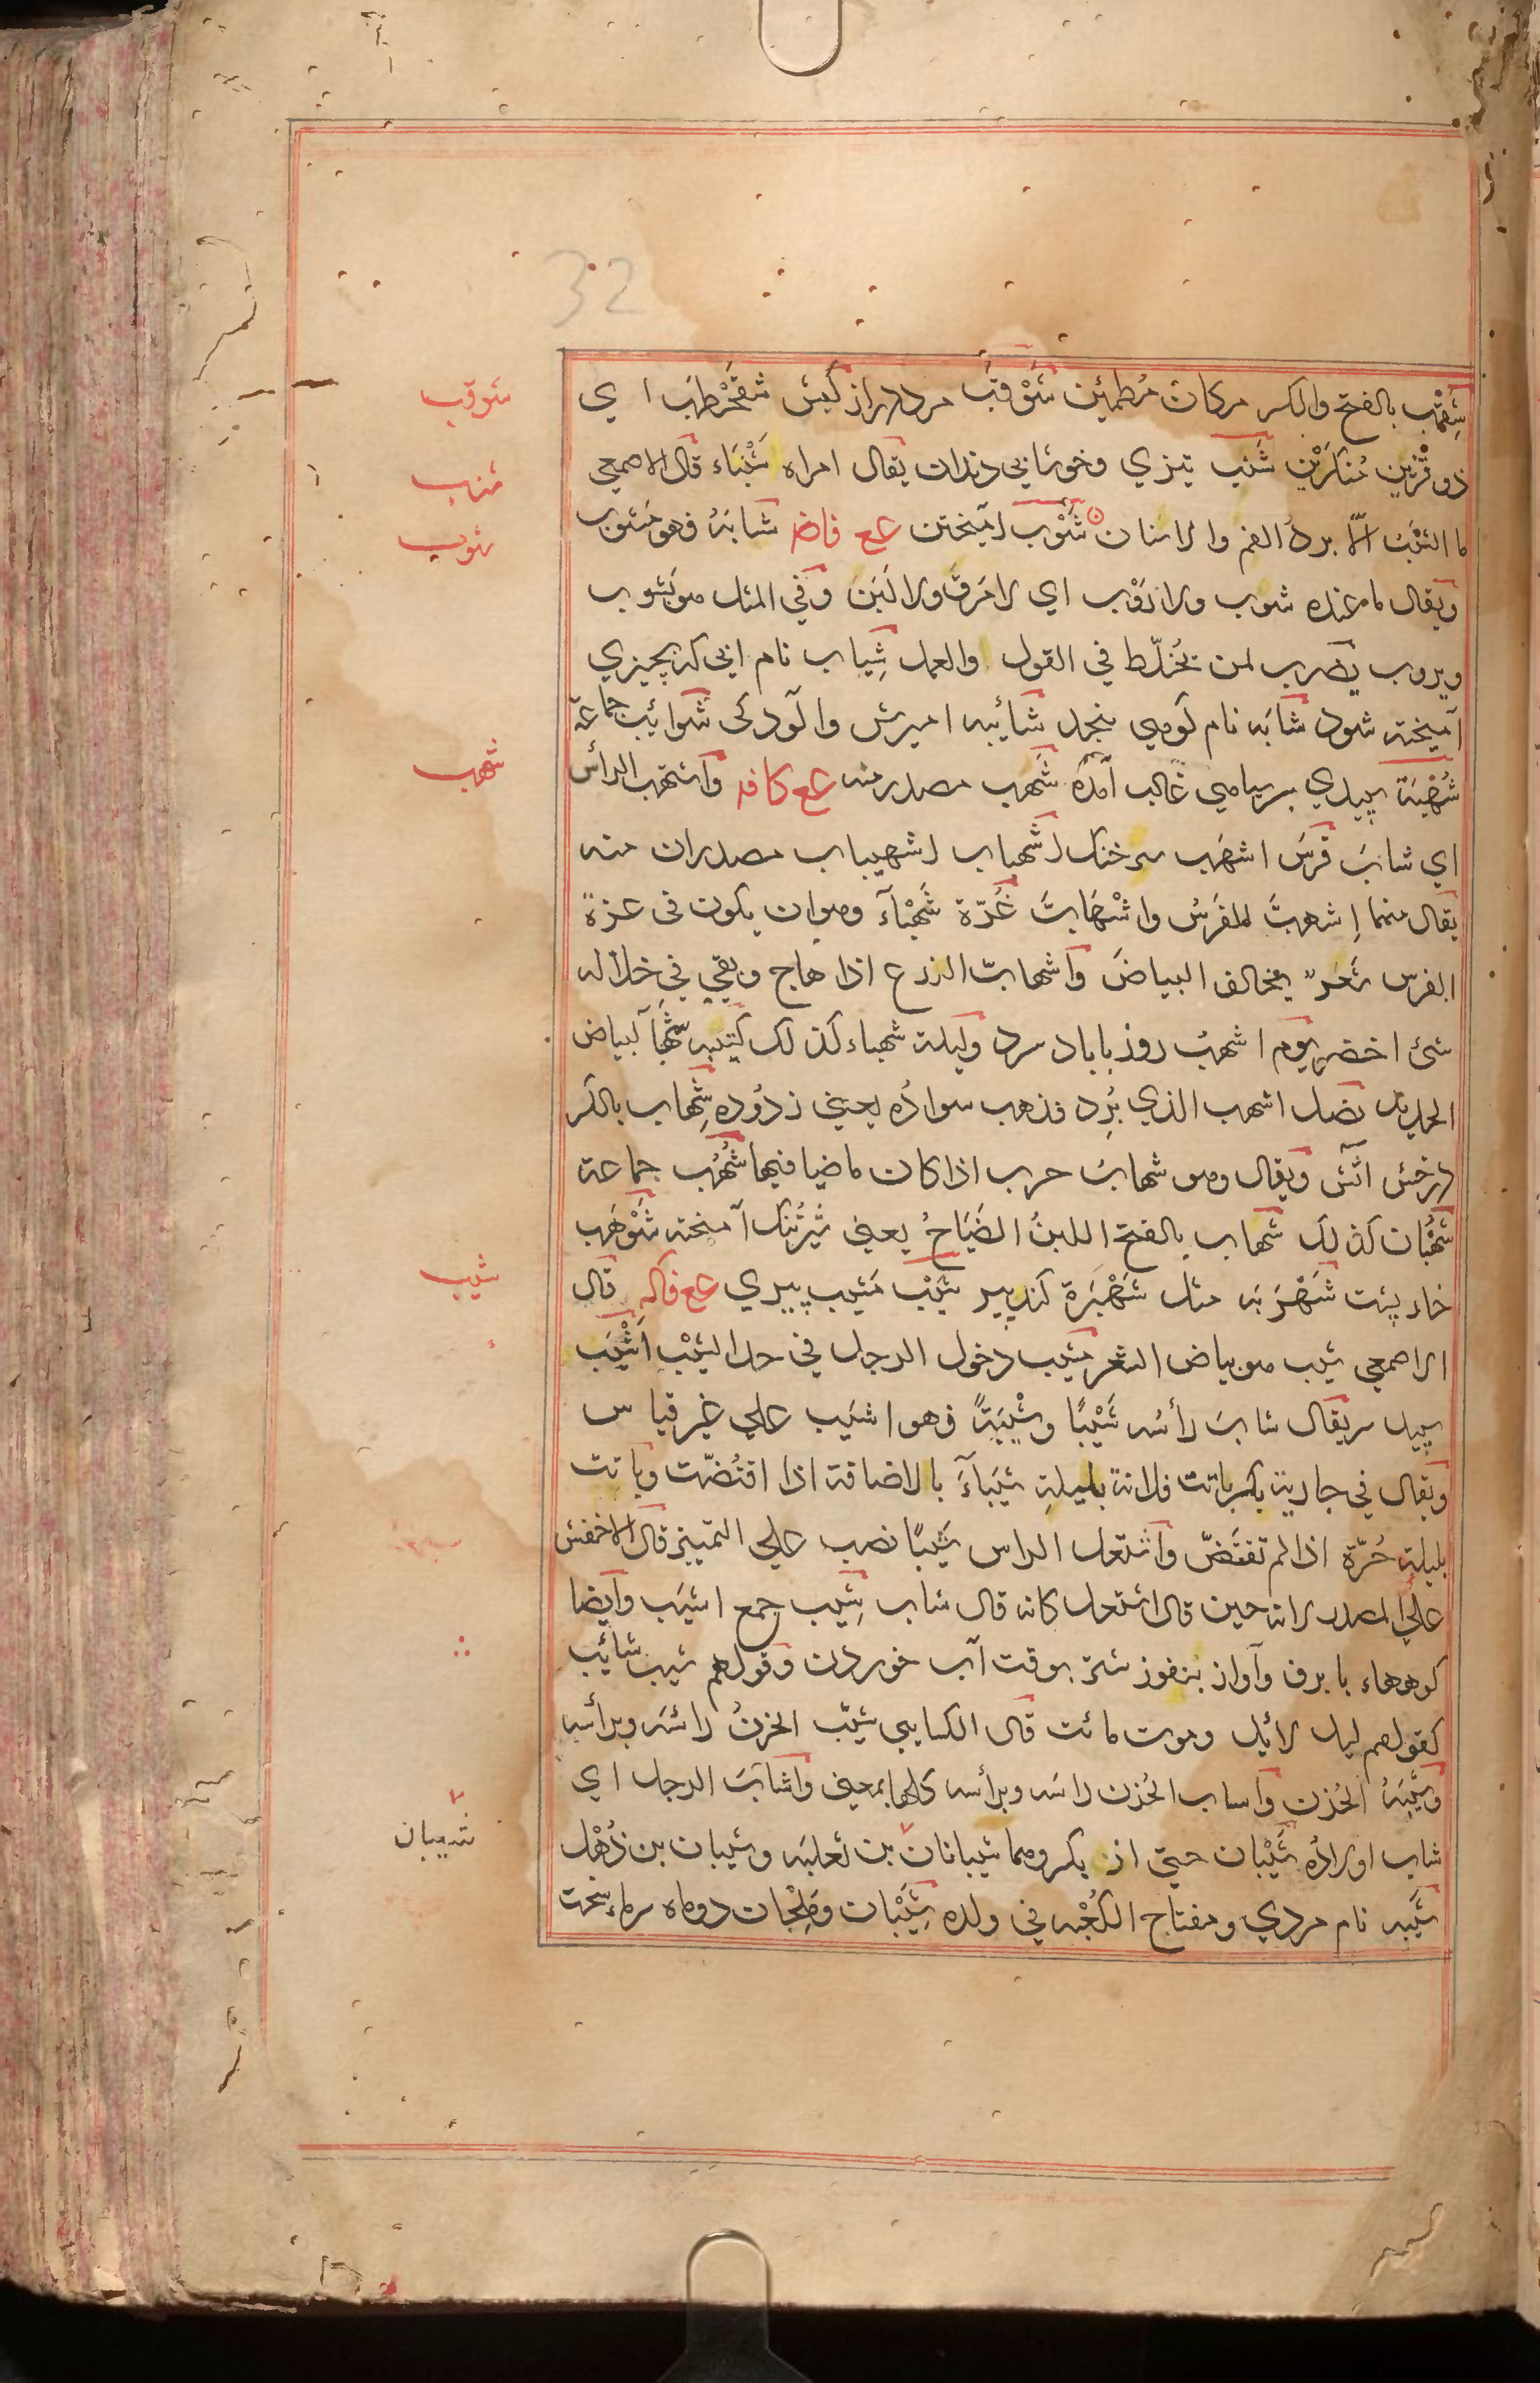 32
شوقب
شَِقْب بالفتح والکسر مرکان مُطمئِن شَوْقَب مرد دراز کبش شقحْطَب ای
شنب
ذو قرنین مُنکَرَیْن شَنَب تیزی و خوشابی دندان یقال امراه شَنْبَاء قال الاصمعی
شوب
ما الشَنَبُ الّا بردُ الفم والاسنان شَوْب آمیختن ع ع فاضـ شَابَهُ فهو مَشوب
ویقال ما عنده شوب ولا رَوْب ای لا مَرَق ولا لَبَن وفی المثل هو یَشوب
ویروب یضرب لمن یُخلّط فی القول والعمل شِیاب نام انچه کز بچیزی
آمیخته شود شَابَه نام کوهی بنجد شائبه امیزش والودکی شَوائب جماعة
شهب
شُهْبَة سپیدی بر سیاهی غالب آمده شَهَب مصدر منه ع ع کافـ واشتهب الرأس
ای شابَ فَرَس اشهَب سرخنک اشهباب اشهیباب مصدران منه
یقال منهما إشهبَّ الفرَسُ واشْهَابَّ غُرّة شَهْبَآء وهو ان یکون فی غرّة
الفرس شَعرٌ یخالف البیاضَ واشهابّ الزرع اذا هاج وبقی فی خلاله
شئ اخضر یوم اشهبُ روز باباد سرد ولیلة شهباء کذلک کتیبه شهْبَا لبیاض
الحدید نصل اشهب الذی بُرِد فذهب سوادُه یعنی زدوُده شِهاب بالکسر
درخش اتش ویقال وهو شهابُ حرب اذا کان ماضیا فیها شُهُب جماعة
شُهْبَان کذلک شَهاب بالفتح اللبنُ الضَیَاحُ یعنی شیرتنک آمیخته شَوْهَب
شیب
خار پشت شَهْرَبَه مثل شَهْبَرَة کندپیر شَیْب مَشیب پیری ع ع فاکـه قال
الاصمعی شیب هو بیاض الشعر مَشیب دخول الرجل فی حد الشَیْب اَشْیَب
سپید سر یقال شابَ رأسُه شَیْبًا وشَیْبَةً فهو اشیَب علی غیر قیاس
ویقال فی جاریة بکر باتت فلانة بلیلةِ شَیْبَآءَ بالاضافة اذا افتُضّت وباتت
بلیلةِ حُرّة اذا لم تفتَضّ واشتعل الراس شَیبًا نصب علی التمییز قال الاخفش
علی المصدر لانه حین قال اشتعل کانه قال شاب شِیب جمع اشیَب وایضا
کوهها با برف وآواز بتفوز شتر بوقت آب خوردن وقولهم شیب شائب
کقولهم لیل لائل وموت مائت قال الکسایی شیّب الحزنُ راسَه وبرأسه
وشَیَّبَهُ الحُزن واساب الحُزن راسَه وبرأسه کلها بمعنی واشابَ الرجل ای
شیبان
شاب اولادُه شَیْبَان حیّ از بکر وهما شیبانان بن ثعلبه وشیبان بن ذُهْل
شَیْبه نام مردی ومفتاح الکعبه فی ولده شَِیْبَان ومَلِحْان دوماه سرماء سخت